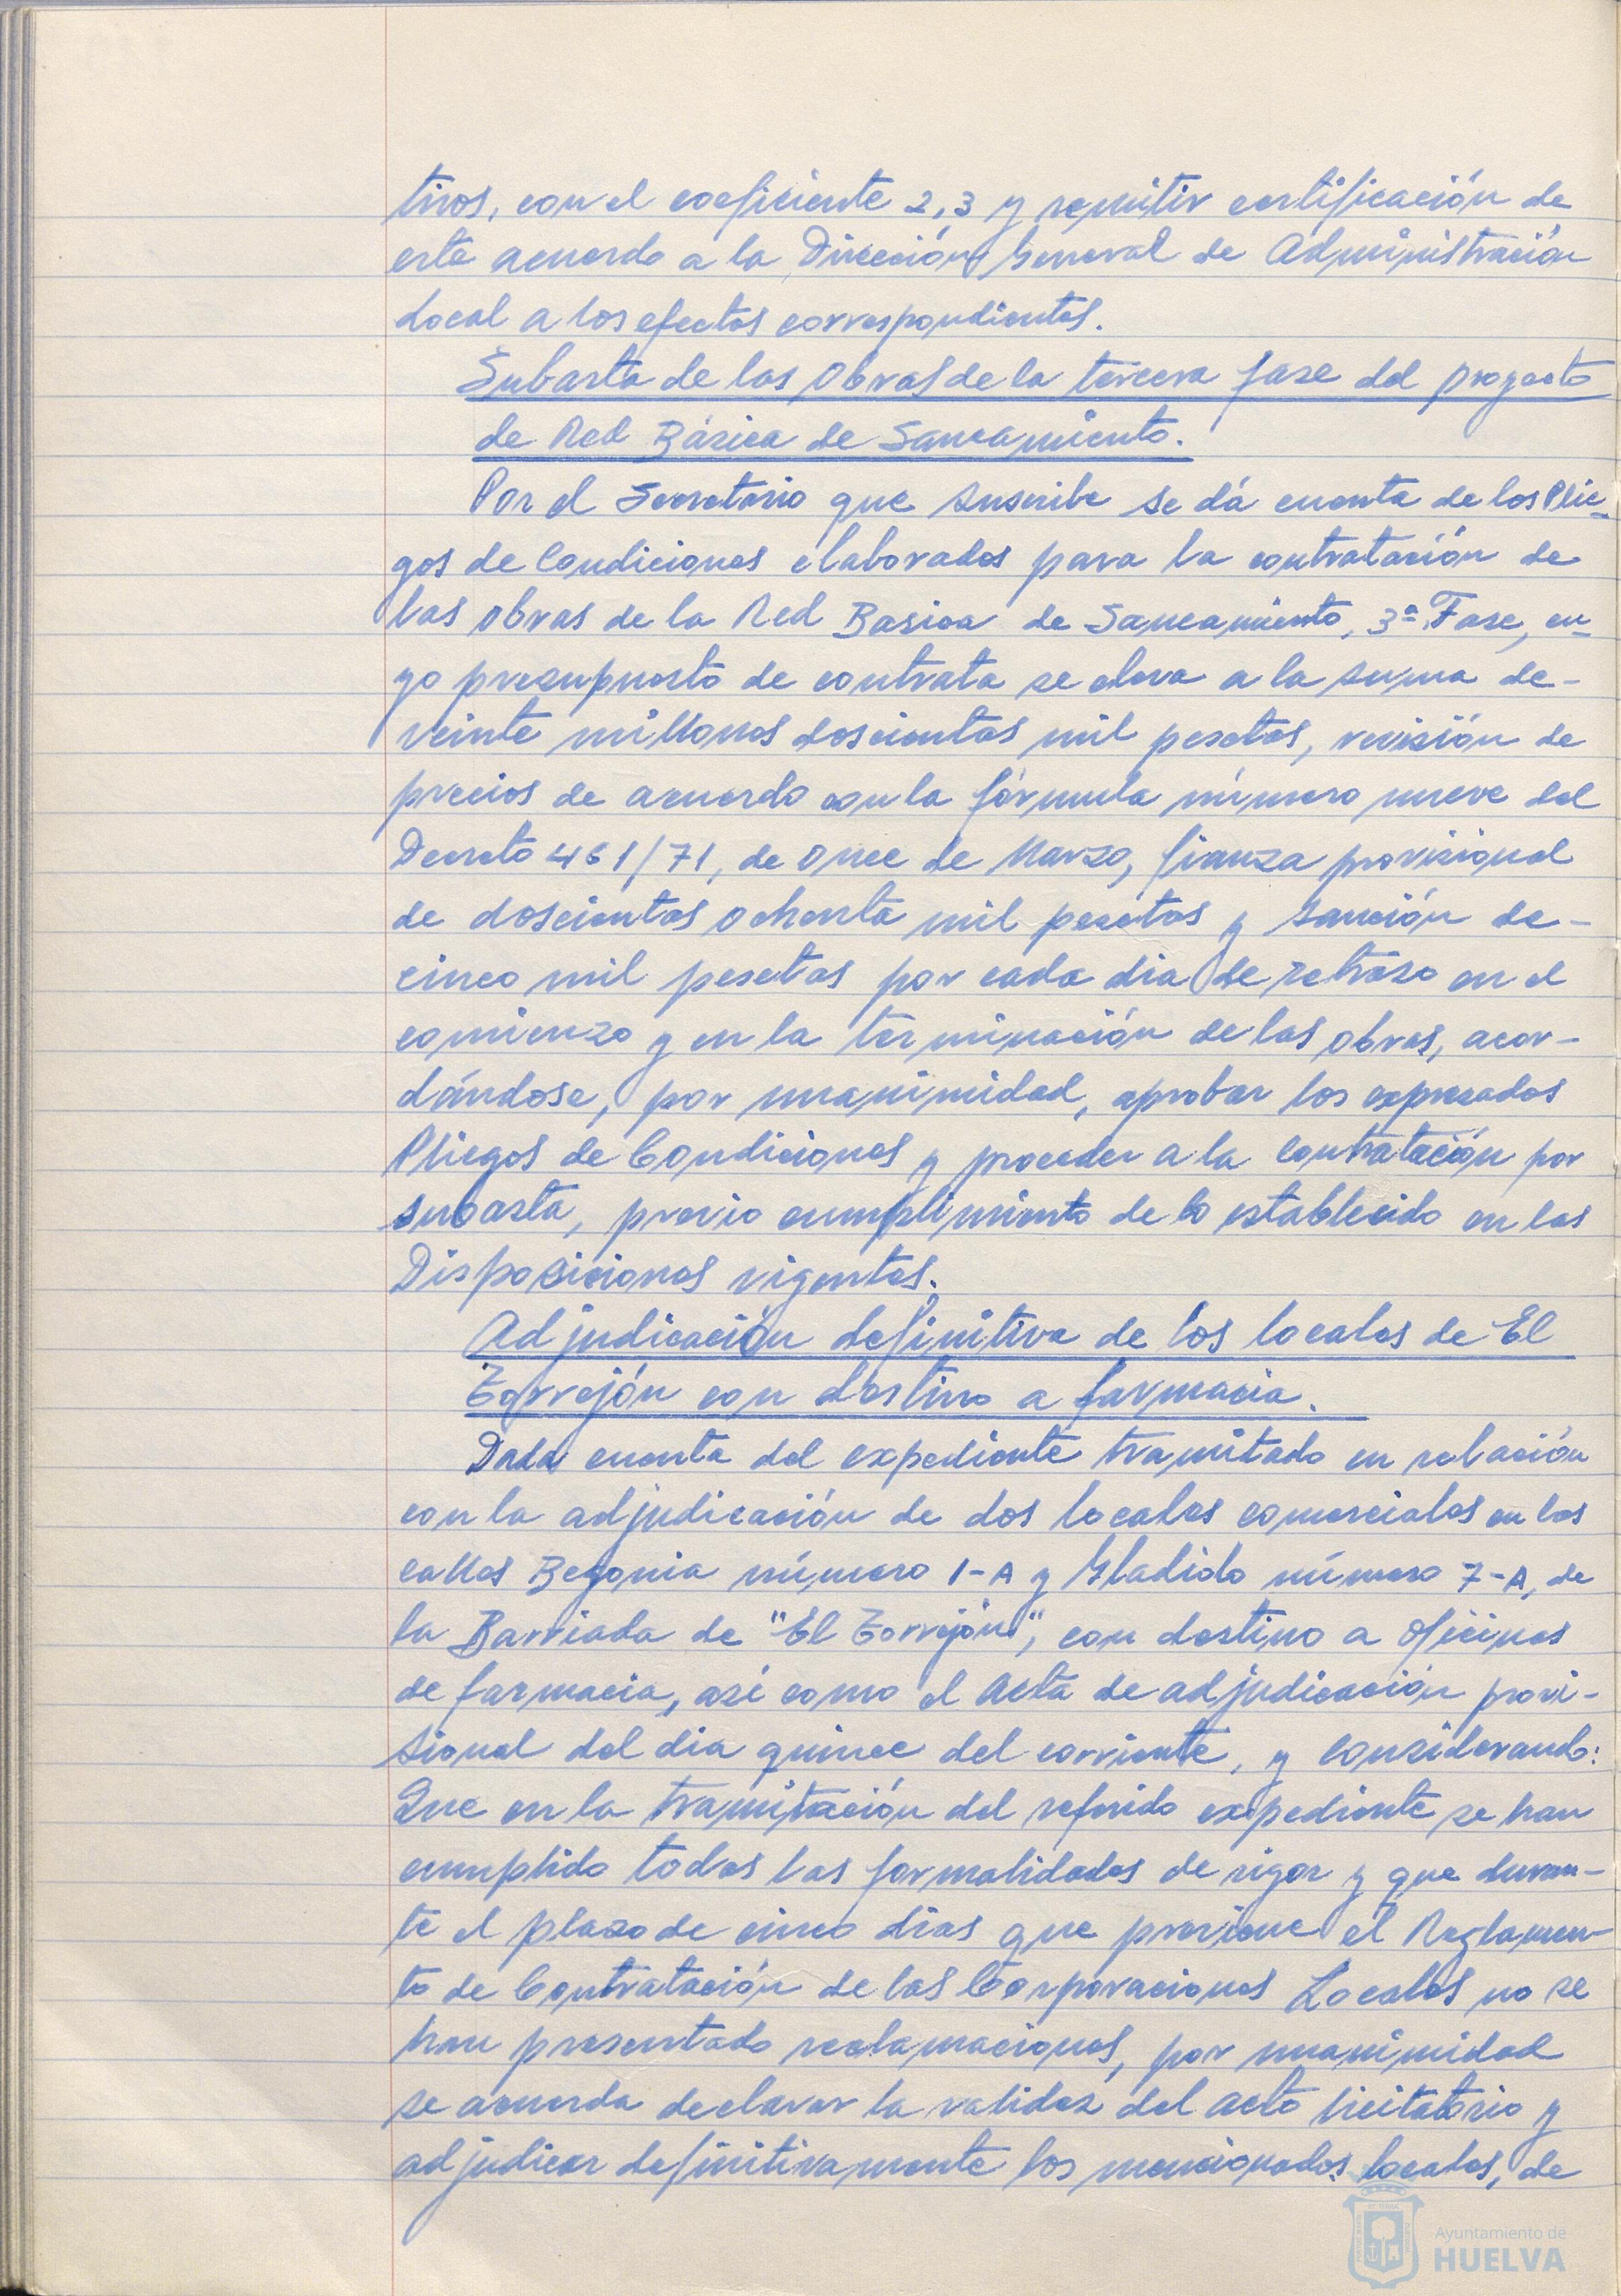 tivos, con el coeficiente 2,3 y remitir certificación de
este acuerdo a la Dirección General de Administración
Local a los efectos correspondientes.
Subasta de las Obras de la tercera fase del proyecto
de Red Básica de Saneamiento.
Por el Secretario que suscribe se dá cuenta de los Plie-
gos de Condiciones elaborados para la contratación de
las obras de la Red Basica de Saneamiento, 3ª Fase, cu-
yo presupuesto de contrata se eleva a la suma de-
veinte millones doscientas mil pesetas, revisión de
precios de acuerdo con la fórmula número nueve del
Decreto 461/71, de once de Marzo, fianza provisional
de doscientas ochenta mil pesetas y sanción de-
cinco mil pesetas por cada dia de retraso en el
comienzo y en la terminación de las obras, acor-
dándose, por unanimidad, aprobar los expresados
Pliegos de Condiciones y proceder a la contratación por
subasta, previo cumplimiento de lo establecido en las
Disposiciones vigentes.
Adjudicación definitiva de los locales de El
Torrejón con destino a farmacia.
Dada cuenta del expediente tramitado en relación
con la adjudicación de dos locales comerciales en las
calles Begonia número 1-A y Gladiolo número 7-A, de
la Barriada de "El Torrejón", con destino a oficinas
de farmacia, asi como el acta de adjudicación provi-
sional del dia quince del corriente, y considerando:
Que en la tramitación del referido expediente se han
cumplido todas las formalidades de rigor y que duran-
te el plazo de cinco dias que previene el Reglamen-
to de Contratación de las Corporaciones Locales no se
han presentado reclamaciones, por unanimidad
se acuerda declarar la validez del acto licitatorio y
adjudicar definitivamente los mencionados locales, de
Ayuntamiento de
HUELVA